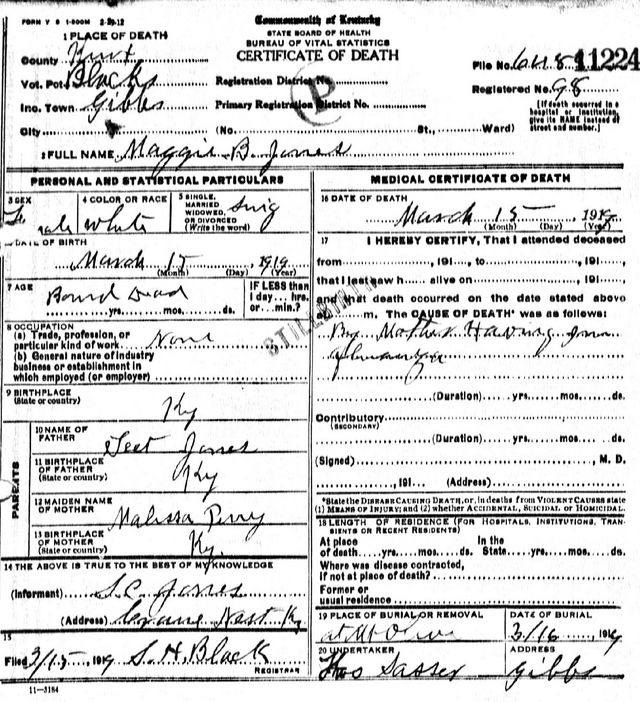 FORM V S 1-500M 2-29-12
Commonwealth of Kentucky
STATE BOARD OF HEALTH
BUREAU OF VITAL STATISTICS
CERTIFICATE OF DEATH
1 PLACE OF DEATH
County Knox
Vot. Pct. Blacks
Inc. Town Gibbs
City (No. St., Ward)
Registration District No.
Primary Registration District No.
P
File No. 11224
Registered No. 98
[If death occurred in a
hospital or institution,
give its NAME instead of
street and number.]
2 FULL NAME Maggie B. Jones
PERSONAL AND STATISTICAL PARTICULARS
3 SEX
4 COLOR OR RACE
white
5 SINGLE,
MARRIED
WIDOWED,
OR DIVORCED
(Write the word)
Sing
DATE OF BIRTH
March 15 1919
(Month) (Day) (Year)
7 AGE
Bornd Dead
yrs. mos. ds.
IF LESS than
1 day... hrs.
or... min.?
8 OCCUPATION
(a) Trade, profession, or
particular kind of work None
(b) General nature of industry
business or establishment in
which employed (or employer)
9 BIRTHPLACE
(State or country)
Ky
PARENTS
10 NAME OF
FATHER
Jones
11 BIRTHPLACE
OF FATHER
(State or country)
Ky
12 MAIDEN NAME
OF MOTHER
Malissa Perry
13 BIRTHPLACE
OF MOTHER
(State or country)
Ky.
14 THE ABOVE IS TRUE TO THE BEST OF MY KNOWLEDGE
(Informant) S.C. Jones
(Address) Ky
15
Filed 3/15, 1919 S. H Black
REGISTRAR
11—3184
MEDICAL CERTIFICATE OF DEATH
16 DATE OF DEATH
March 15, 1919
(Month) (Day) (Year)
17 I HEREBY CERTIFY, That I attended deceased
from, 191..., to, 191...,
that I last saw h... alive on, 191...,
and that death occurred on the date stated above
at m. The CAUSE OF DEATH* was as follows:
By Mother Having
STILLBORN
(Duration) yrs. mos. ds.
Contributory
(SECONDARY)
(Duration) yrs. mos. ds.
(Signed), M. D.
, 191... (Address)
*State the DISEASE CAUSING DEATH, or, in deaths from VIOLENT CAUSES state
(1) MEANS OF INJURY; and (2) whether ACCIDENTAL, SUICIDAL or HOMICIDAL.
18 LENGTH OF RESIDENCE (FOR HOSPITALS, INSTITUTIONS, TRAN-
SIENTS OR RECENT RESIDENTS)
At place In the
of death yrs. mos. ds. State yrs. mos. ds.
Where was disease contracted,
if not at place of death?
Former or
usual residence
19 PLACE OF BURIAL OR REMOVAL
at Mt Olive
DATE OF BURIAL
3/16, 1919
20 UNDERTAKER
Thos Sasser
ADDRESS
Gibbs